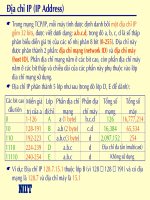 Địa chỉ IP (IP Address)
Trong mạng TCP/IP, mỗi máy tính được định danh bởi một địa chỉ IP
gồm 32 bits, được viết dưới dạng: a.b.c.d, trong đó a, b, c, d là số thập
phân biểu diễn giá trị của các số nhị phân 8 bit (0-255). Địa chỉ này
được phân thành 2 phần: địa chỉ mạng (network ID) và địa chỉ máy
(host ID). Phần địa chỉ mạng nằm ở các bit cao, còn phần địa chỉ máy
nằm ở các bit thấp và chiều dài của các phần này phụ thuộc vào lớp
địa chỉ mạng sử dụng.
Địa chỉ IP phân thành 5 lớp như sau (trong đó lớp D, E để dành):
Các bit cao đầu tiên Miền giá trị của a Lớp địa chỉ Phần địa chỉ mạng Phần địa chỉ máy Tổng số mạng Tổng số máy
0 1-126 A a (1 byte) b.c.d 126 16,777,214
10 128-191 B a.b (2 byte) c.d 16,384 65,534
110 192-223 C a.b.c (3 byte) d 2,097,152 254
1110 224-239 D
11110 240-254 E Không sử dụng
Ví dụ: Địa chỉ IP 128.7.15.1 thuộc lớp B (vì 128 ∈ [128 ∈ 191]) và có địa
mạng là 128.7 và địa chỉ máy là 15.1